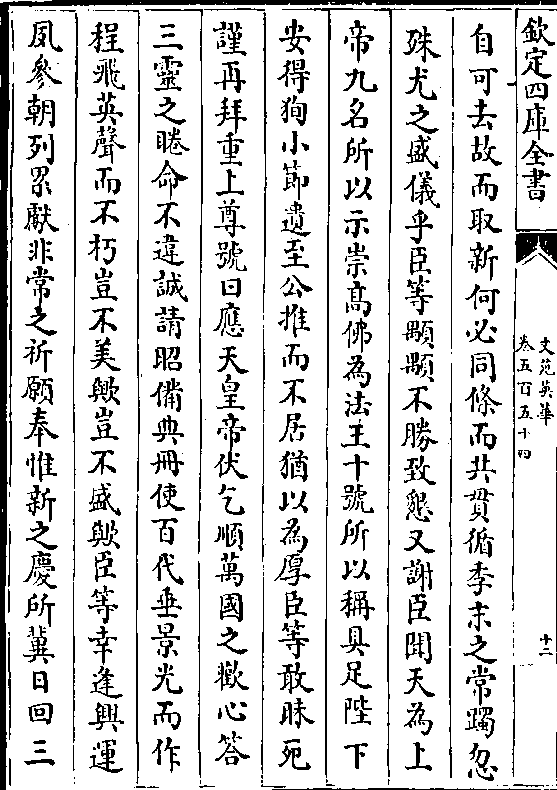 欽定四庫全書
文苑英華
卷五百五十四
十二
自可去故而取新何必同條而共貫循季末之常躅忽
殊尤之盛儀乎臣等顒顒不勝致懇又謝臣聞天為上
帝九名所以示崇高佛為法王十號所以稱具足陛下
安得狥小節遺至公推而不居猶以為厚臣等敢昧死
謹再拜重上尊號曰應天皇帝伏乞順萬國之歡心答
三靈之睠命不違誠請昭備典冊使百代垂景光而作
程飛英聲而不朽豈不美歟豈不盛歟臣等幸逢興運
夙參朝列累獻非常之祈願奉惟新之慶所冀日回三